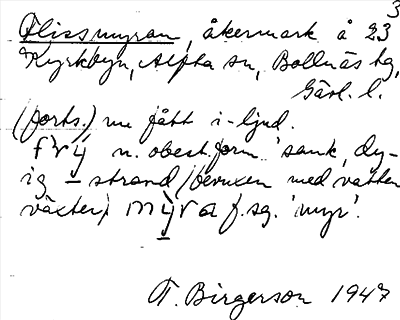 3
Flissmyran, åkermark å 23
Kyrkbyn, Alfta sn, Bollnäs tg,
Gävl. l.
(forts.) nu fått i-ljud.
frÿ n. obest. form 'sank, dy-
ig – strand (bevuxen med vatten
växter)' mÿra f. sg. 'myr'.
T. Birgerson 1947